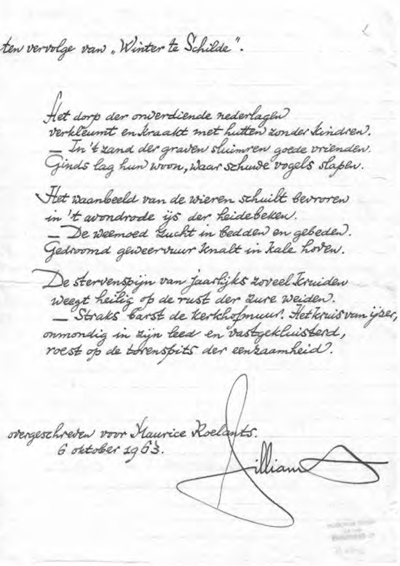 ten vervolge van „Winter te Schilde".
Het dorp der onverdiende nederlagen
verkleumt en kraakt met hutten zonder kindren.
— In 't zand der graven sluimren goede vrienden.
Ginds lag hun woon, waar schuwe vogels slapen.
Het waanbeeld van de wieren schuilt bevroren
in 't avondrode ijs der heidebeken.
— De weemoed zucht in bedden en gebeden.
Gedroomd geweervuur knalt in kale hoven.
De stervenspijn van jaarlijks zoveel kruiden
weegt heilig op de rust der zure weiden.
— Straks barst de kerkhofmuur. Het kruis van ijzer,
onmondig in zijn leed en vastgekluisterd,
roest op de torenspits der eenzaamheid.
overgeschreven voor Maurice Roelants.
6 oktober 1963.
Jilliams